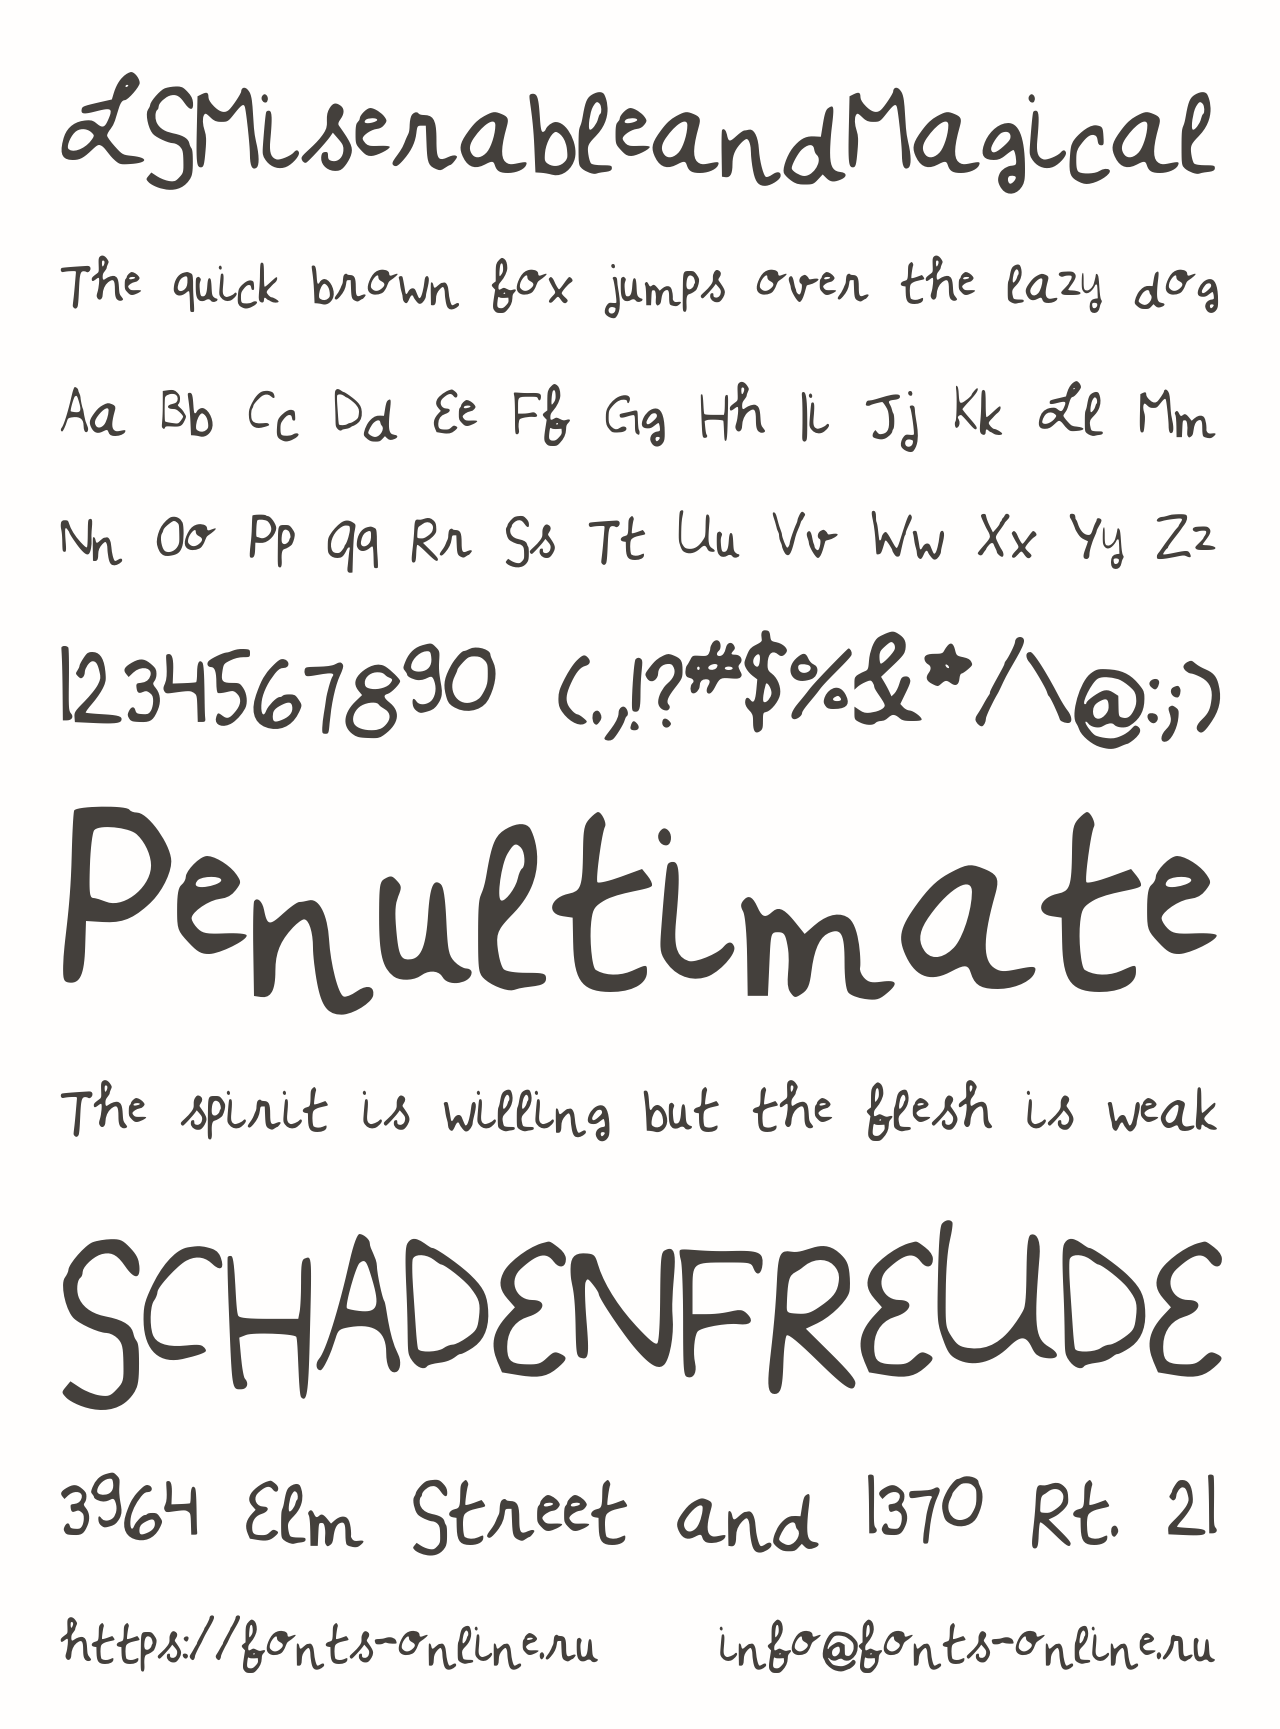 LSMiserableandMagical
The quick brown fox jumps over the lazy dog
Aa Bb Cc Dd Ee Ff Gg Hh Ii Jj Kk Ll Mm
Nn Oo Pp Qq Rr Ss Tt Uu Vv Ww Xx Yy Zz
1234567890 (.,!?#$%&*/\@:;)
Penultimate
The spirit is willing but the flesh is weak
SCHADENFREUDE
3964 Elm Street and 1370 Rt. 21
https://fonts-online.ru info@fonts-online.ru